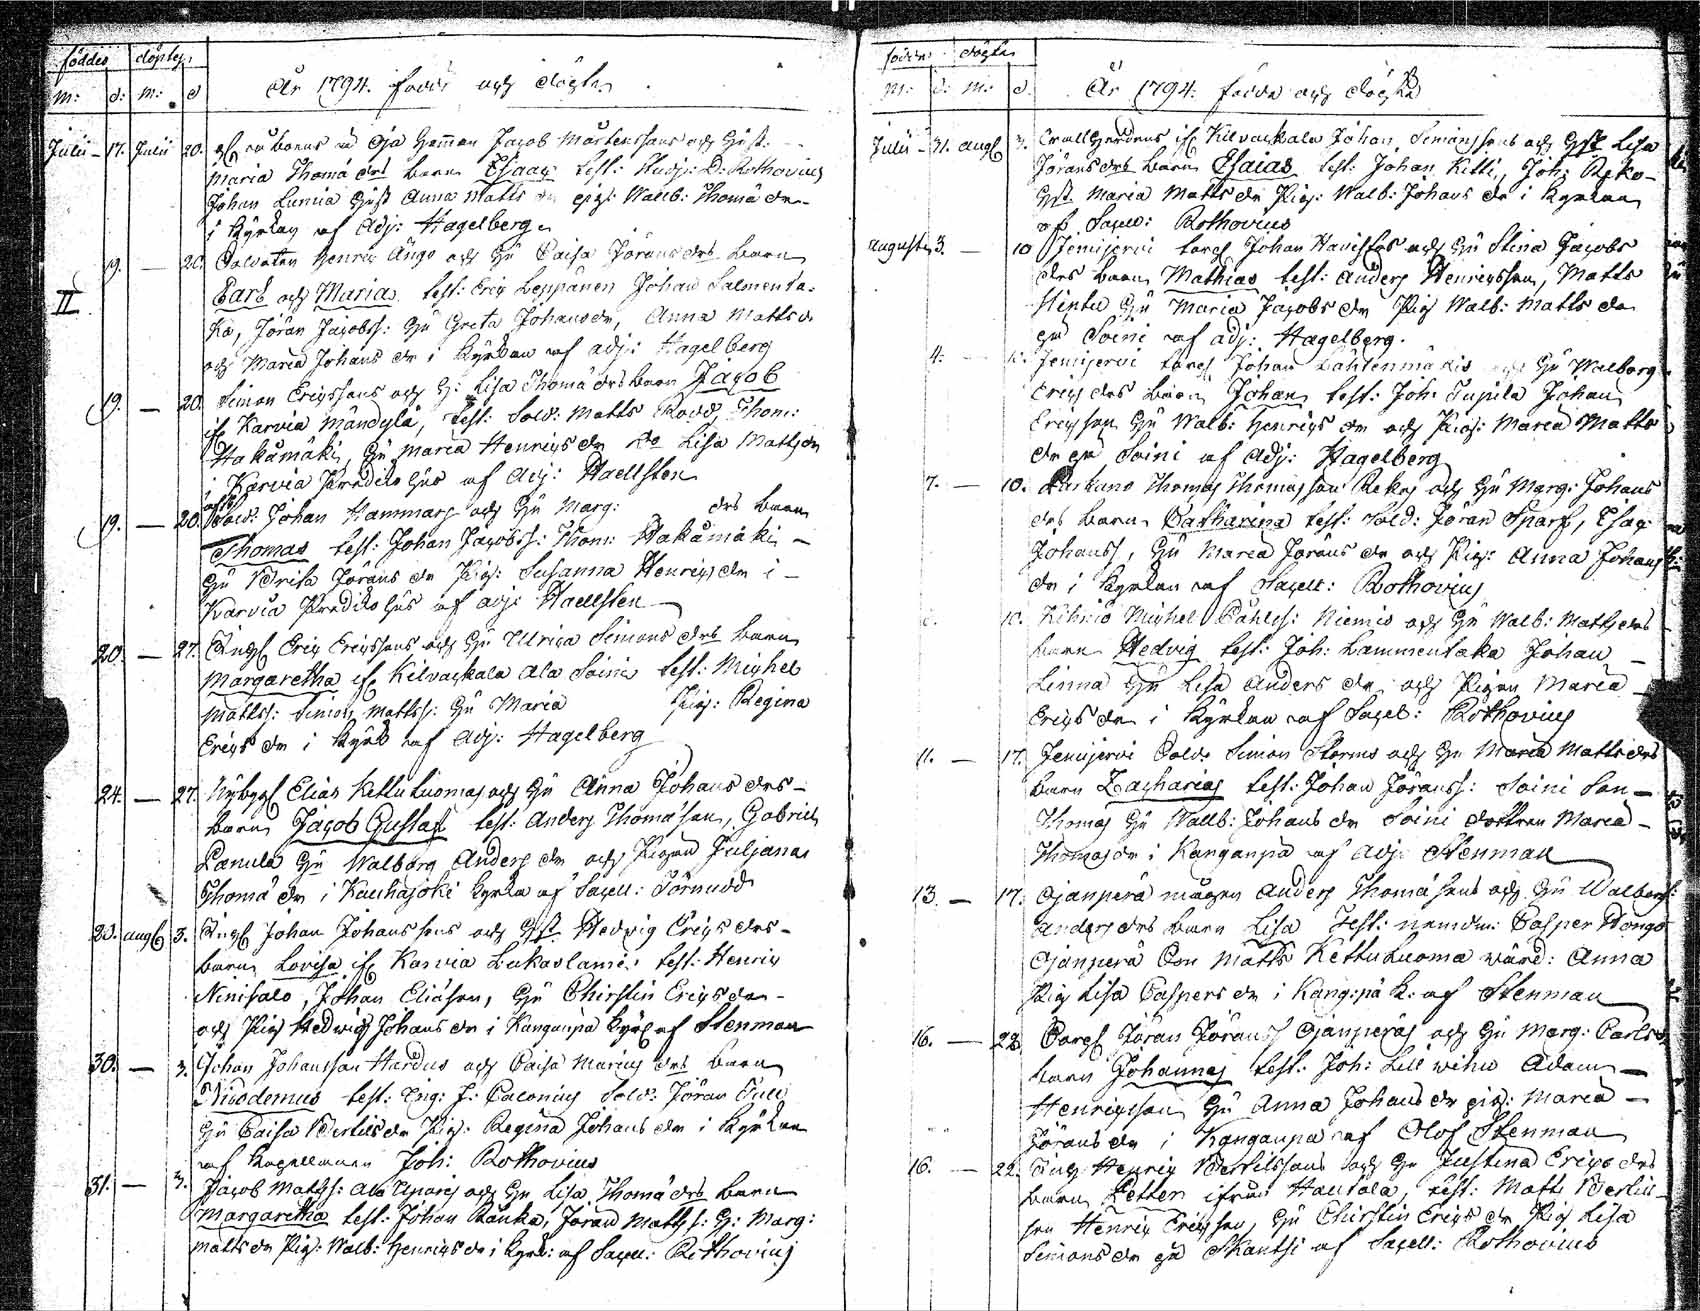 föddes döptes
m: d: m: d
År 1794. födde och döpte
Julii - 17. Julii 20. Hemman Jacob Mårtenssons och Hust.
Maria Thomä drs barn Esaac test: Studj: D: Rothovius
Johan Hust Anna Matts dr pig: Walb: Thomä dr
i kyrkan af Adj: Hagelberg
19. — 20. Soldaten Henric Ängo och Hu Caisa Jörans drs barn
II Carl och Maria. test: Eric Leppänen Johan Salmenta-
ka, Jöran Jacobss: Hu Greta Johans dr, Anna Matts dr
och Maria Johans dr i kyrkan af adj: Hagelberg
19. — 20. Simon Ericssons och H: Lisa Thomä drs barn Jacob
if Karvia Mändylä, test: Sold: Matts Thom:
Hakamäki, Hu Maria Henrics dr Do Lisa Matts dr
i Karvia Predikohus af Adj: Haellsten
19. — 20. Sold: Johan Hammars och Hu Marg: drs barn
Thomas test: Johan Jacobss: Thom: Hakamäki -
Hu Brita Jörans dr Pig: Susanna Henrics dr i -
Karvia Prediko Hus af adj: Haellsten
20. — 27. Eric Ericssons och Hu Ulrica Simons drs barn
Margaretha if Kilvaskala Ala Soini test: Michel
Mattss: Simon Mattss: Hu Maria Pig: Regina
Erics dr i kyrk af Adj: Hagelberg
24. — 27. Nybygg Elias Kettuluomas och Hu Anna Johans drs -
barn Jacob Gustaf test: Anders Thomä son, Gabriel
Panula Hu Walborg Anders dr och Pigan Juliana
Thomä dr i Kauhajoki kyrka af Sacell: Törnudd
23. aug 3. Johan Johanssons och Hust Hedvig Erics drs -
barn Lovisa if Karvia test: Henric
Ninisalo, Johan Eliason, Hu Christin Erics dr -
och Pig Hedvig Johans dr i Kangaspä kyrk af Stenman
30. — 3. Johan Johansson Hardus och Caisa Marias drs barn
Nicodemus test: Sold: Jöran
Hu Caisa Bertils dr Pig: Regina Johans dr i Kyrkan
af kapellanen Joh: Rothovius
31. — 3. Jacob Mattss: och Hu Lisa Thomä drs barn
Margaretha test: Johan Jöran Mattss: H: Marg:
Matts dr Pig: Walb: Henrics dr i kyrk: af Sacell: Rothovius
födde döpte
m: d: m: d.
År 1794. födde och döpte
Julii - 31. aug 3. if Kilvaskala Johan Simonssons och Hust Lisa
Jörans drs barn Esaias test: Johan Kitti, Joh: Reko-
Hust Maria Matts dr Pig: Walb: Johans dr i Kyrkan
af Sacell: Rothovius
augusti 3. — 10 Jemijervi torp Johan och Hu Stina Jacobs
drs barn Mathias test: Anders Henricsson, Matts
Hu Maria Jacobs dr Pig Walb: Matts dr
på Soini af adj: Hagelberg.
4. — Jemijervi torp Johan Lähtenmäkis Hu Walborg
Erics drs barn Johan test: Joh: Johan
Ericsson Hu Walb: Henrics dr och Pig: Maria Matts
dr på Soini af Adj: Hagelberg
7. — 10. Thomas Thomasson Rekos och Hu Marg: Johans
drs barn Catharina test: Sold: Jöran Sparf, Esaj:
Johanss, Hu Maria Jörans dr och Pig: Anna Johans
dr i kyrkan af Sacell: Rothovius
10. Kihniö Michel Påhlss: Niemis och Hu Walb: Matts drs
barn Hedvig test: Joh: Lammentaka Johan
Linna Hu Lisa Anders dr och Pigan Maria
Erics dr i kyrkan af Sacel: Rothovius
11. — 17. Jemijervi Sold: Simon Storms och Hu Maria Matts drs
barn Zacharias test: Johan Jöranss: Soini Son -
Thomas Hu Wallb: Johans dr Soini dottren Maria -
Thomas dr i Kangaspä af Adj: Stenman
13. — 17. Ojanperä mågen Anders Thomä sons och Hu Walborg
Anders drs barn Lisa Test: nemdm: Casper Hongo
Ojanperä Son Matts Kettuluoma wärd: Anna
Pig Lisa Caspers dr i Kang:pä k: af Stenman
16. — 22 Torp Jöran Jöranss Ojanperäs och Hu Marg: Carls dr
barn Johannes test: Joh: Lill Adam —
Henricsson Hu Anna Johans dr pig: Maria —
Jörans dr i Kangaspä af Olof Stenman
16. — 22. Henric Bertilssons och Hu Justina Erics drs
barn Petter ifrån Hautala, test: Matts Bertil-
son Henric Ericsson, Hu Christin Erics dr Pig Lisa
Simons dr på Skantsi af Sacell: Rothovius